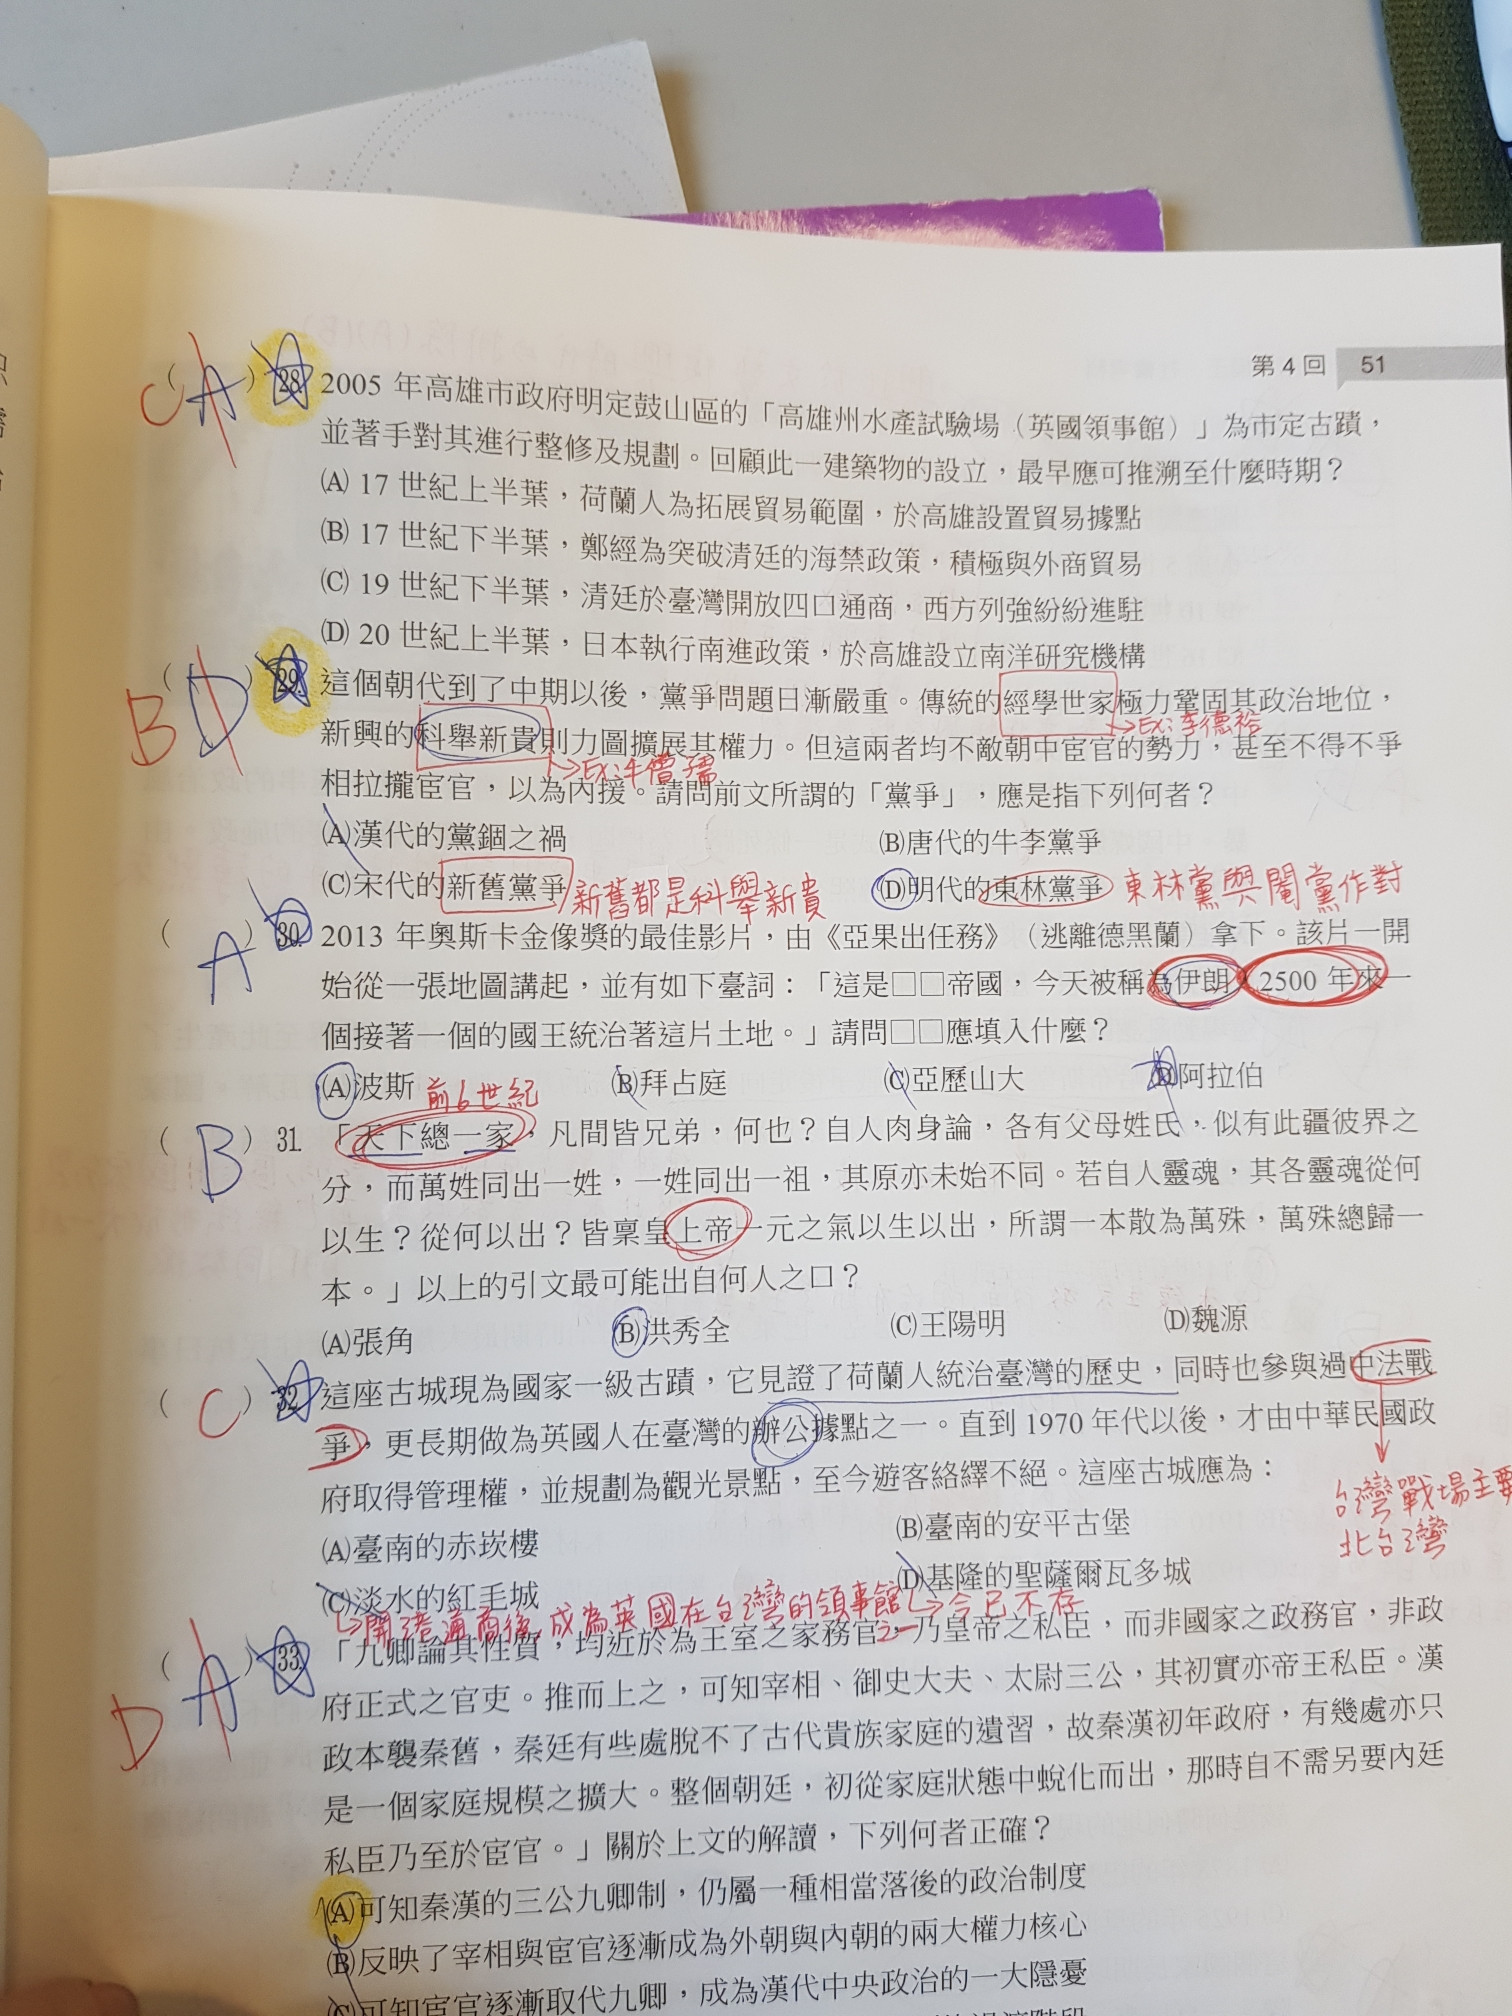 第4回 51
C ( A ) 28. 2005 年高雄市政府明定鼓山區的「高雄州水產試驗場（英國領事館）」為市定古蹟，
並著手對其進行整修及規劃。回顧此一建築物的設立，最早應可推溯至什麼時期？
(A) 17 世紀上半葉，荷蘭人為拓展貿易範圍，於高雄設置貿易據點
(B) 17 世紀下半葉，鄭經為突破清廷的海禁政策，積極與外商貿易
(C) 19 世紀下半葉，清廷於臺灣開放四口通商，西方列強紛紛進駐
(D) 20 世紀上半葉，日本執行南進政策，於高雄設立南洋研究機構
B ( D ) 29. 這個朝代到了中期以後，黨爭問題日漸嚴重。傳統的經學世家極力鞏固其政治地位，
→Ex:李德裕
新興的科舉新貴則力圖擴展其權力。但這兩者均不敵朝中宦官的勢力，甚至不得不爭
→Ex:牛僧孺
相拉攏宦官，以為內援。請問前文所謂的「黨爭」，應是指下列何者？
(A)漢代的黨錮之禍 (B)唐代的牛李黨爭
(C)宋代的新舊黨爭 新舊都是科舉新貴 (D)明代的東林黨爭 東林黨與閹黨作對
( A ) 30. 2013 年奧斯卡金像獎的最佳影片，由《亞果出任務》（逃離德黑蘭）拿下。該片一開
始從一張地圖講起，並有如下臺詞：「這是□□帝國，今天被稱為伊朗，2500 年來一
個接著一個的國王統治著這片土地。」請問□□應填入什麼？
(A)波斯 前6世紀 (B)拜占庭 (C)亞歷山大 (D)阿拉伯
( B ) 31. 「天下總一家，凡間皆兄弟，何也？自人肉身論，各有父母姓氏，似有此疆彼界之
分，而萬姓同出一姓，一姓同出一祖，其原亦未始不同。若自人靈魂，其各靈魂從何
以生？從何以出？皆稟皇上帝一元之氣以生以出，所謂一本散為萬殊，萬殊總歸一
本。」以上的引文最可能出自何人之口？
(A)張角 (B)洪秀全 (C)王陽明 (D)魏源
( C ) 32. 這座古城現為國家一級古蹟，它見證了荷蘭人統治臺灣的歷史，同時也參與過中法戰
爭，更長期做為英國人在臺灣的辦公據點之一。直到 1970 年代以後，才由中華民國政
府取得管理權，並規劃為觀光景點，至今遊客絡繹不絕。這座古城應為：
台灣戰場主要
北台灣
(A)臺南的赤崁樓 (B)臺南的安平古堡
(C)淡水的紅毛城 (D)基隆的聖薩爾瓦多城
↳開港通商後,成為英國在台灣的領事館之一 ↳今已不存
D ( A ) 33. 「九卿論其性質，均近於為王室之家務官，乃皇帝之私臣，而非國家之政務官，非政
府正式之官吏。推而上之，可知宰相、御史大夫、太尉三公，其初實亦帝王私臣。漢
政本襲秦舊，秦廷有些處脫不了古代貴族家庭的遺習，故秦漢初年政府，有幾處亦只
是一個家庭規模之擴大。整個朝廷，初從家庭狀態中蛻化而出，那時自不需另要內廷
私臣乃至於宦官。」關於上文的解讀，下列何者正確？
(A)可知秦漢的三公九卿制，仍屬一種相當落後的政治制度
(B)反映了宰相與宦官逐漸成為外朝與內朝的兩大權力核心
(C)可知宦官逐漸取代九卿，成為漢代中央政治的一大隱憂